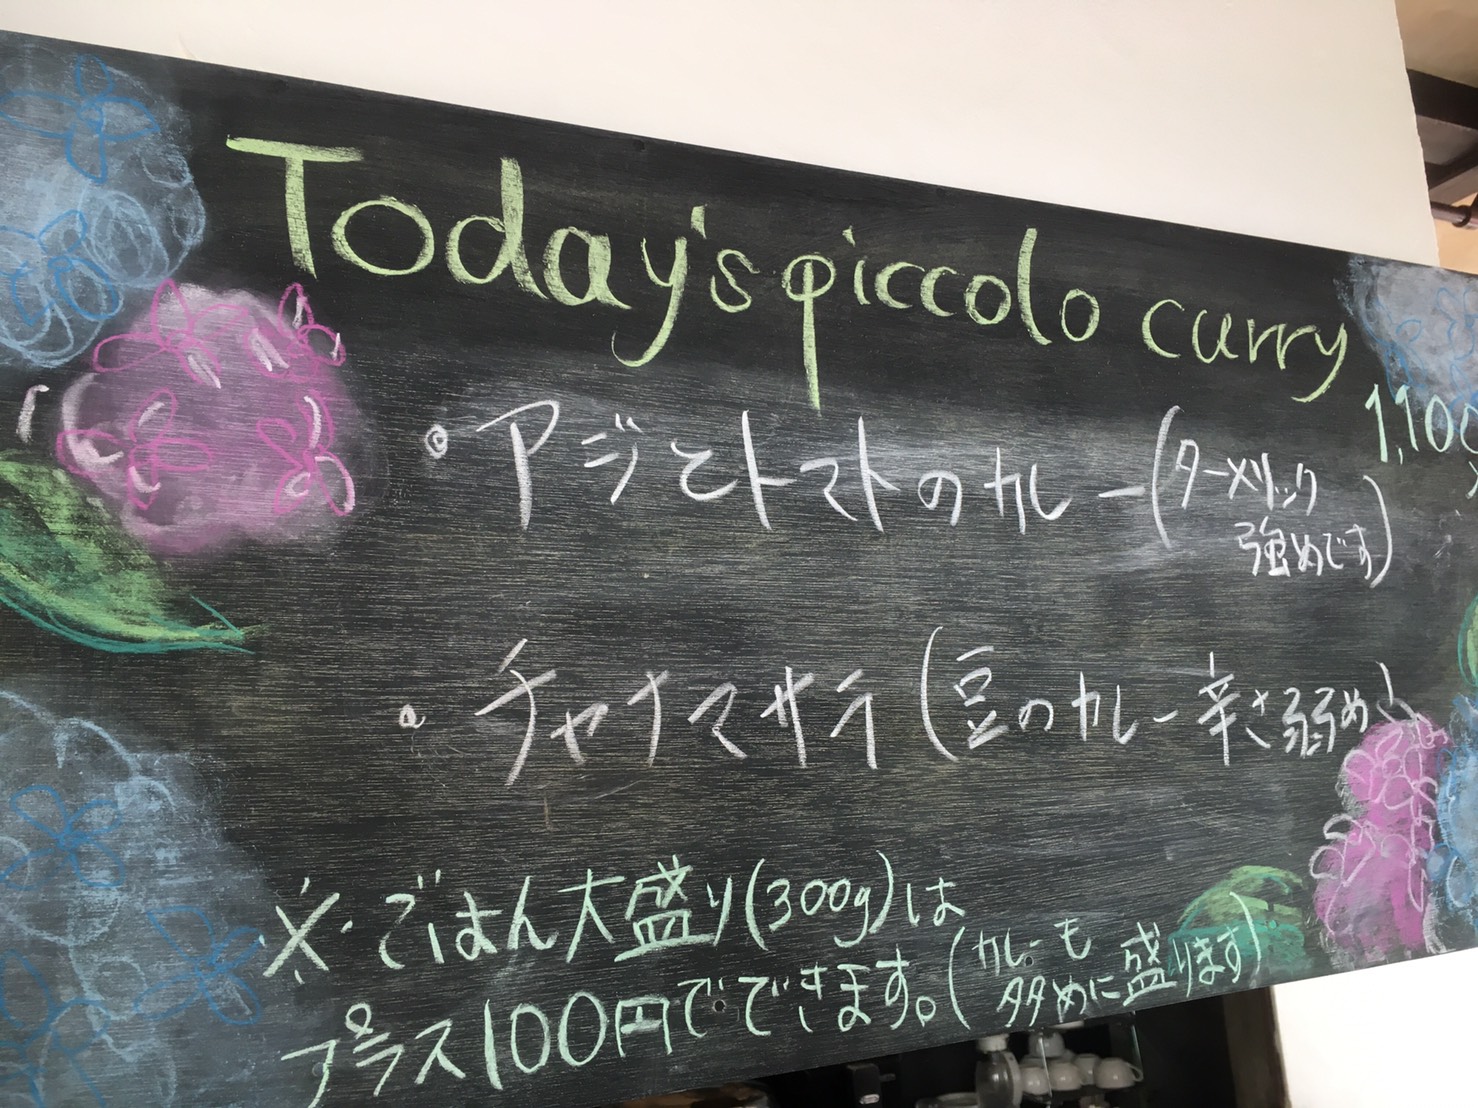 Today's piccolo curry
1,100
・アジとトマトのカレー(ターメリック
強めです)
・チャナマサラ(豆のカレー辛さ弱め)
※・ごはん大盛り(300g)は
プラス100円でできます。(カレーも
多めに盛ります)